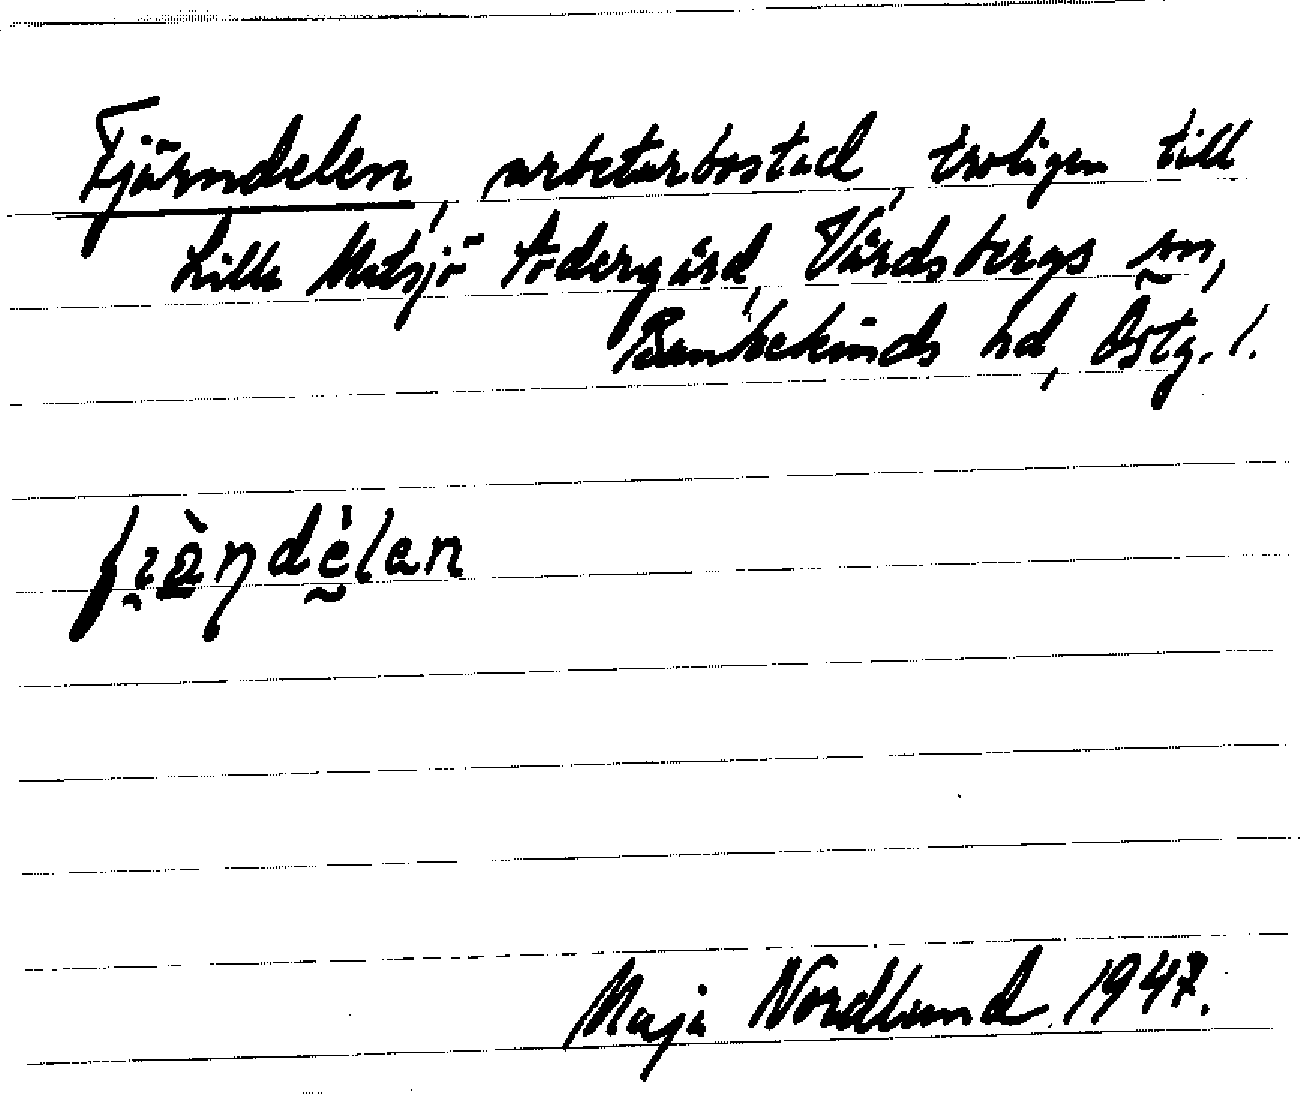 Fjärndelen, arbetarbostad, troligen till
Lilla Matsjö Södergård, Vårdsbergs sn,
Bankekinds hd, Östg. l.
fi̯àṇdèlan
Maja Nordlund 1947.